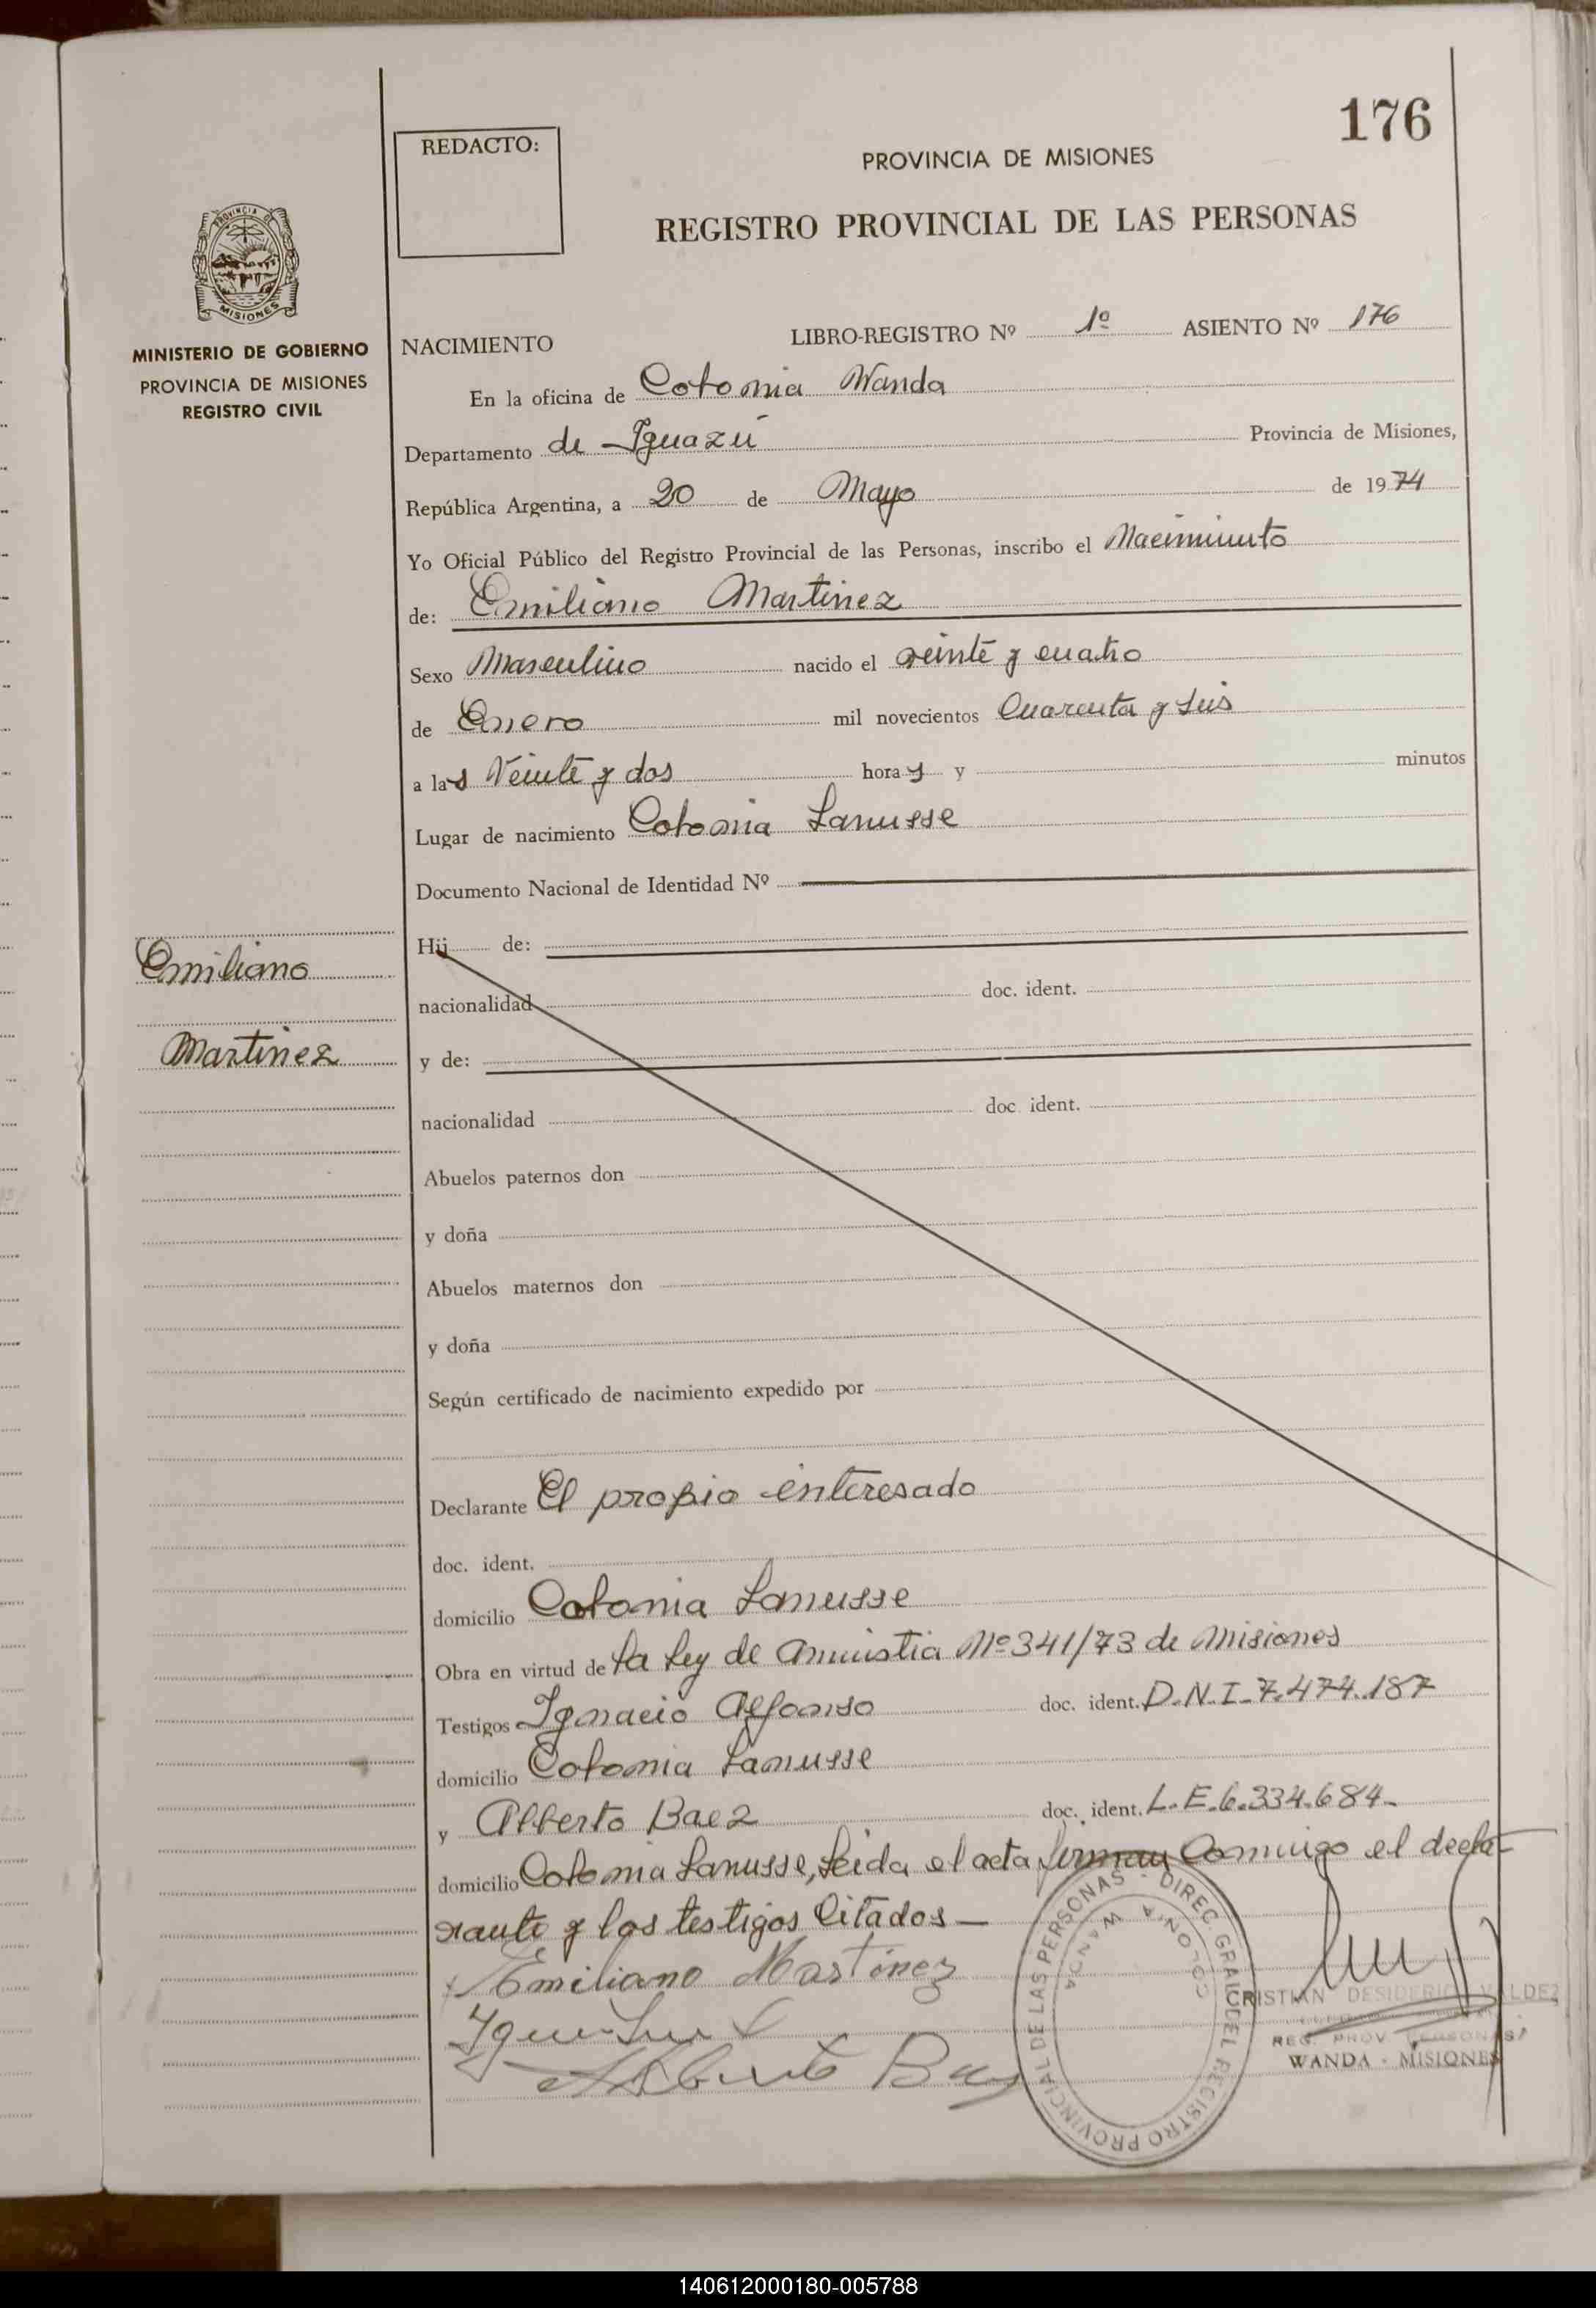 176
REDACTO:
PROVINCIA DE MISIONES
REGISTRO PROVINCIAL DE LAS PERSONAS
PROVINCIA DE
MISIONES
MINISTERIO DE GOBIERNO
PROVINCIA DE MISIONES
REGISTRO CIVIL
NACIMIENTO LIBRO-REGISTRO Nº 1º ASIENTO Nº 176
En la oficina de Colonia Wanda
Departamento de Iguazú Provincia de Misiones,
República Argentina, a 20 de Mayo de 1974
Yo Oficial Público del Registro Provincial de las Personas, inscribo el Nacimiento
de: Emiliano Martinez
Sexo Masculino nacido el veinte y cuatro
de Enero mil novecientos Cuarenta y seis
a las Veinte y dos horas y minutos
Lugar de nacimiento Colonia Lanusse
Documento Nacional de Identidad Nº
Emiliano
Martinez
Hij de:
nacionalidad doc. ident.
y de:
nacionalidad doc. ident.
Abuelos paternos don
y doña
Abuelos maternos don
y doña
Según certificado de nacimiento expedido por
Declarante El propio interesado
doc. ident.
domicilio Colonia Lanusse
Obra en virtud de La Ley de Amnistia Nº 341/73 de Misiones
Testigos Ignacio Alfonso doc. ident. D.N.I-7.474.187
domicilio Colonia Lanusse
y Alberto Baez doc. ident. L.E.6.334.684-
domicilio Colonia Lanusse, Leida el acta firman Conmigo el decla-
rante y los testigos Citados-
Emiliano Martínez
Alberto
DIREC. GRAL. DEL REGISTRO PROVINCIAL DE LAS PERSONAS -
COLONIA WANDA
CRISTIAN DESIDERIO VALDEZ
REG. PROV. PERSONAS
WANDA - MISIONES
140612000180-005788